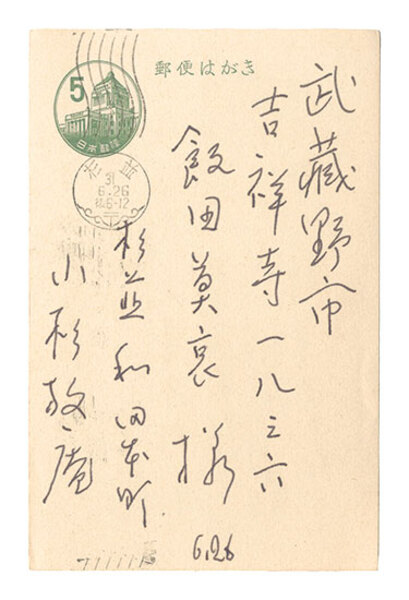 郵便はがき
5
日本郵便
31
6.26
武蔵野市
吉祥寺一八三六
飯田莫哀様
杉並和田本町
小杉放庵
6.26